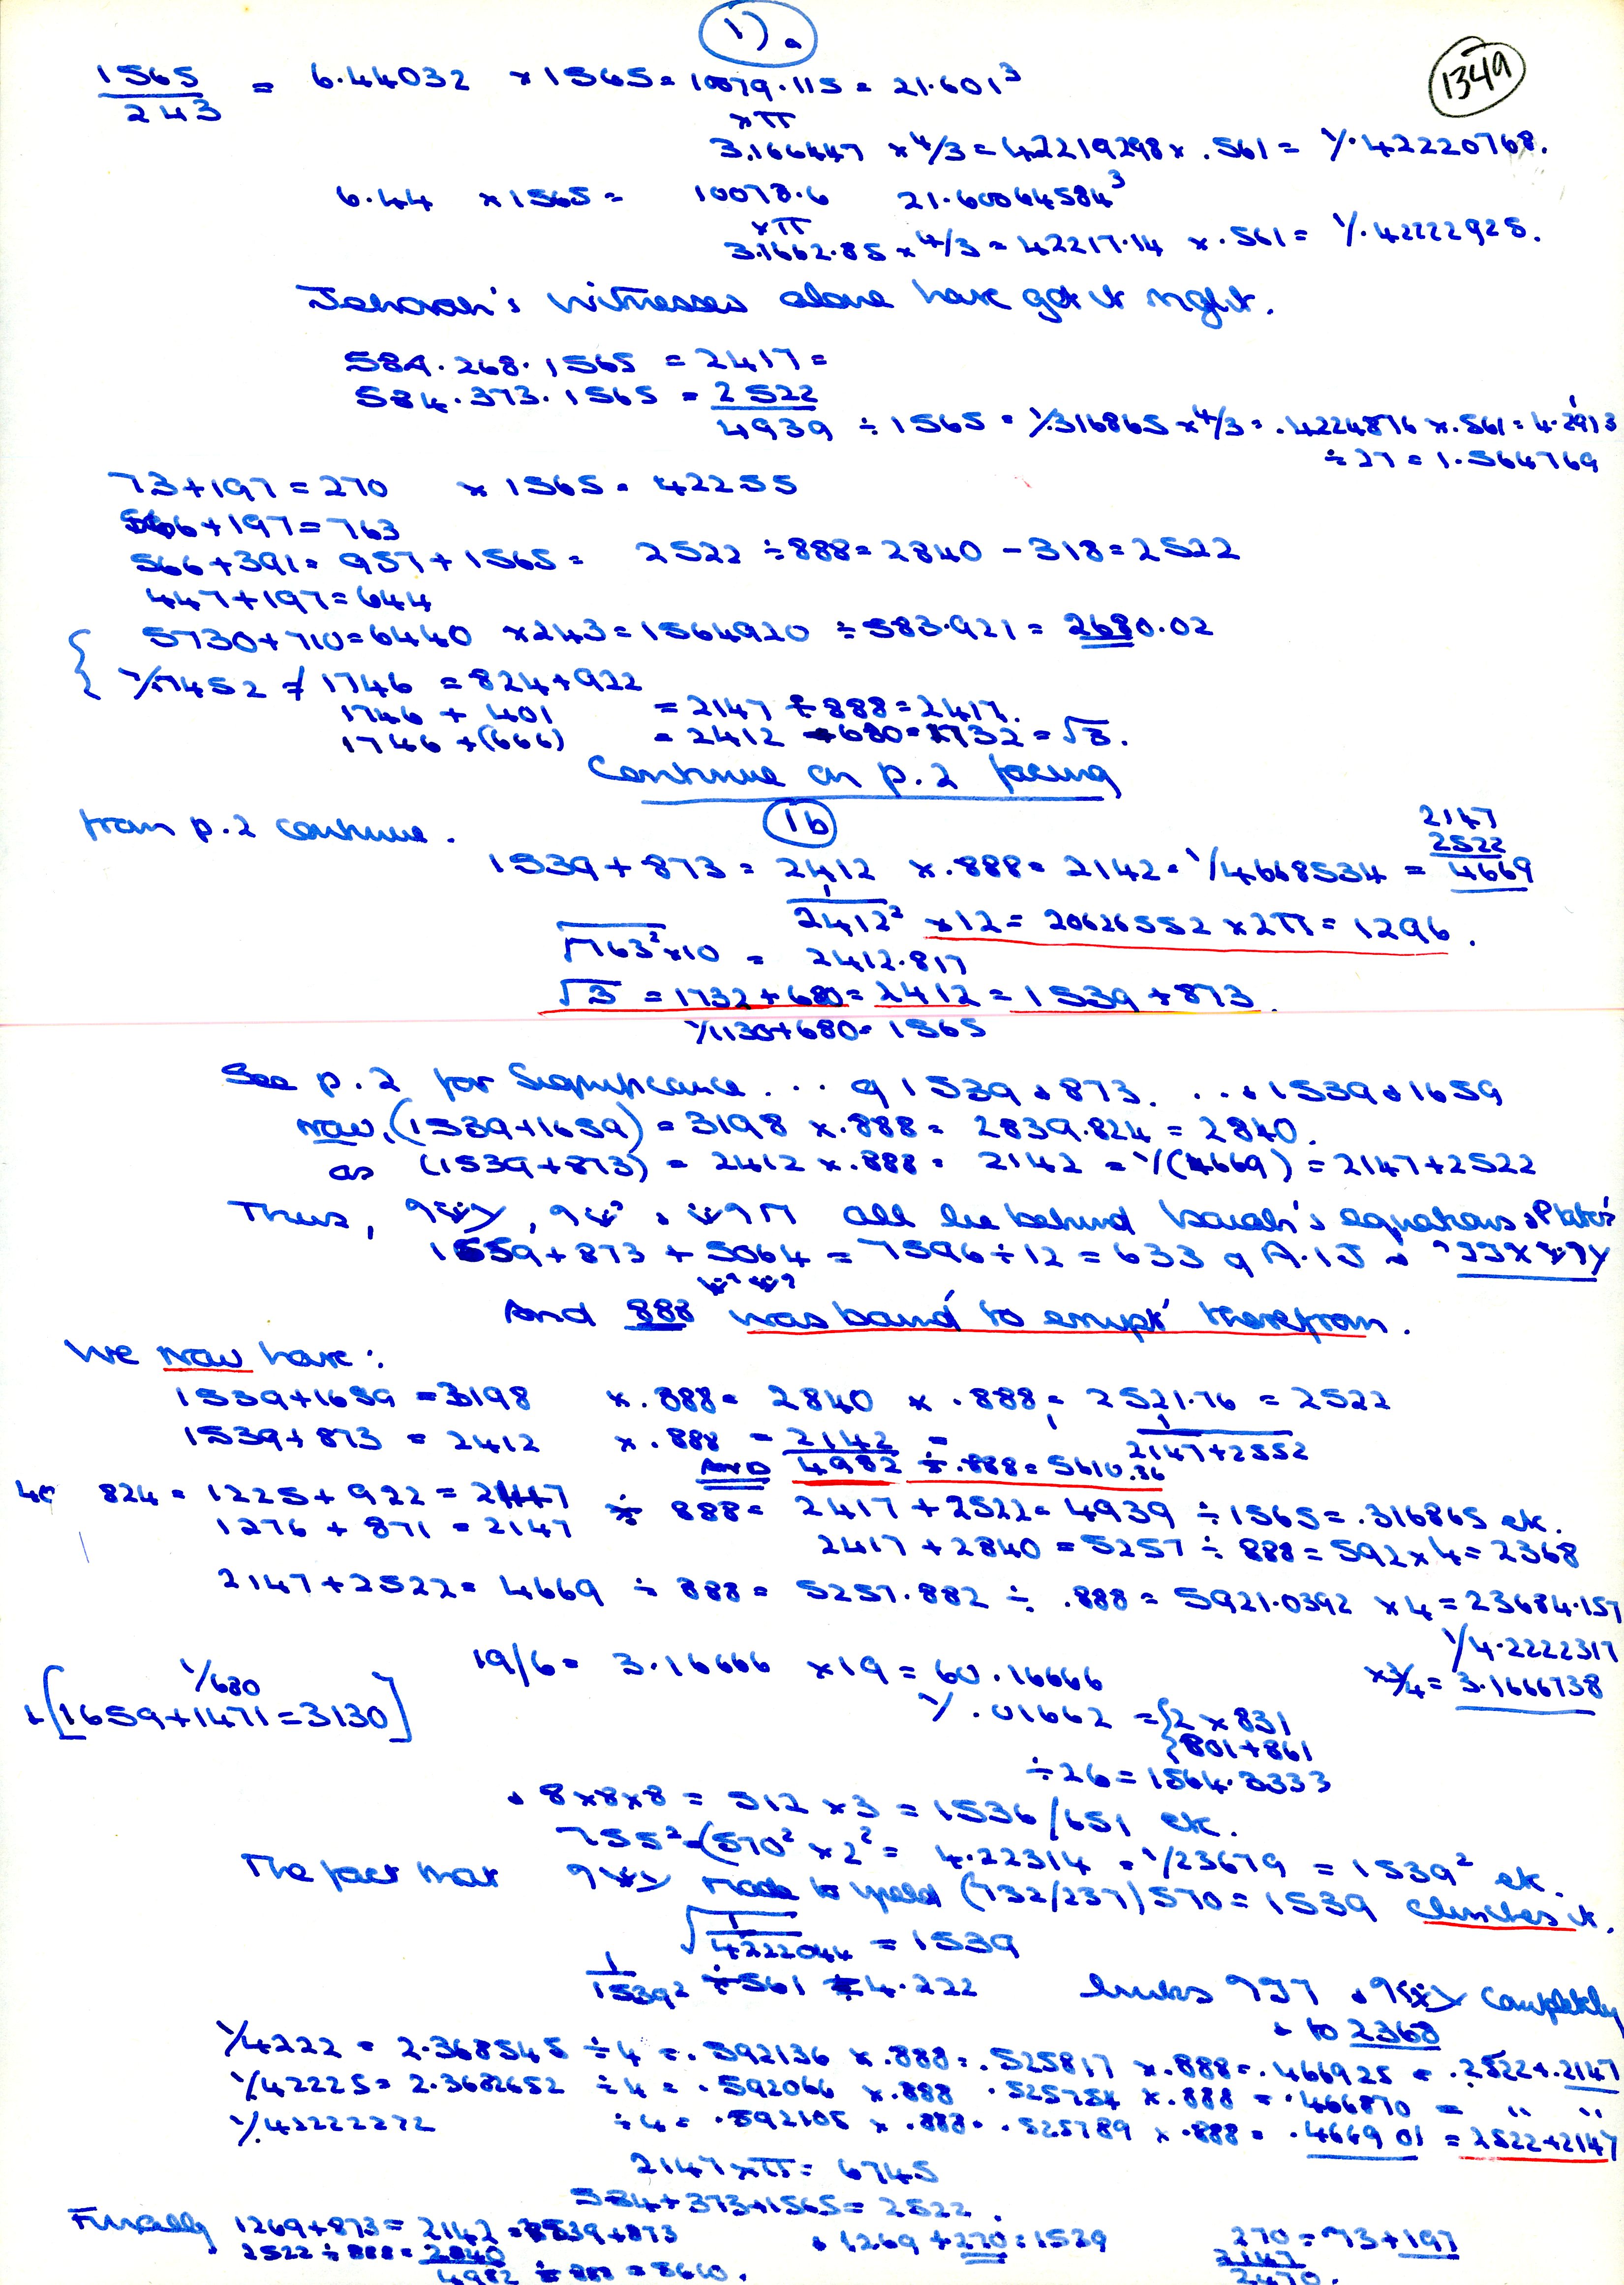 1)a
1349
1565/243 = 6.44032 × 1565 = 10079.115 = 21.601³
×π
3.166447 × 4/3 = 42219298 × .561 = 1/.42220768.
6.44 × 1565 = 10078.6 21.60064584³
×π
3.1662.85 × 4/3 = 42217.14 × .561 = 1/.42222925.
Jehovah's witnesses alone have got it right.
584.268.1565 = 2417 =
584.373.1565 = 2522
4939 ÷ 1565 = 1/.316865 × 4/3 = .4224876 × .561 = 4.2913
÷ 27 = 1.564769
73+197 = 270 × 1565 = 42255
566+197 = 763
566+391 = 957+1565 = 2522 ÷ 888 = 2840 - 318 = 2522
447+197 = 644
5730+710 = 6440 × 243 = 1564920 ÷ 583.921 = 2680.02
= 1746 = 824+922
1746 + 401 = 2147 ÷ 888 = 2417.
1746 + (666) = 2412 1732 = √3.
Continue on p.2 facing
1b
from p.2 continue.
2147
2522
1539 + 873 = 2412 × .888 = 2142 = 1/4668534 = 4669
1
2412² × 12 = 20626552 × 2π = 1296.
√763² × 10 = 2412.817
√3 = 1732 + 680 = 2412 = 1539 + 873.
1/1130+680 = 1565
See p.2 for Significance ... of 1539 & 873. ... & 1539 & 1659
now, (1539+1659) = 3198 × .888 = 2839.824 = 2840.
as (1539+873) = 2412 × .888 = 2142 = 1/(4669) = 2147+2522
Thus, all lie behind Isaiah's equations & Plato's
1659 + 873 + 5064 = 7596 ÷ 12 = 633 of A.1J &
And 888 was bound to erupt therefrom.
We now have:
1539+1659 = 3198 × .888 = 2840 × .888 = 2521.76 = 2522
1539+873 = 2412 × .888 = 2142 = 1 / 2147+2552
AND 4982 ÷ .888 = 5610.36
824 = 1225 + 922 = 2147 ÷ 888 = 2417 + 2522 = 4939 ÷ 1565 = .316865 etc.
1276 + 871 = 2147
2417 + 2840 = 5257 ÷ 888 = 592 × 4 = 2368
2147+2522 = 4669 ÷ 888 = 5257.882 ÷ .888 = 5921.0392 × 4 = 23684.157
1/4.2222317
× 3/4 = 3.1666738
19/6 = 3.16666 × 19 = 60.16666
1/680
& [1659+1471 = 3130]
1/.01662 = {2 × 831
{801+861
÷ 26 = 1564.3333
& 8×8×8 = 512 × 3 = 1536/651 etc.
755² - (570² × 2² = 4.22314 = 1/23679 = 1539² etc.
The fact that made to yield (732/237) 570 = 1539 clinches it.
√1/4222044 = 1539
1/1539² ÷ 561 = 4.222 links & completely
& to 2368
1/4222 = 2.368545 ÷ 4 = .592136 × .888 = .525817 × .888 = .466925 = .2522+.2147
1/42225 = 2.3682652 ÷ 4 = .592066 × .888 .525754 × .888 = .466870 = " "
1/.42222222 ÷ 4 = .592105 × .888 = .525789 × .888 = .466901 = 2522+2147
2147 × π = 6745
584+373+1565 = 2522.
Finally 1269+873 = 2142 = 1539+873 & 1269 + 270 = 1539 270 = 73+197
2522 ÷ 888 = 2840 2147
4982 ÷ 888 = 5610. 2470.